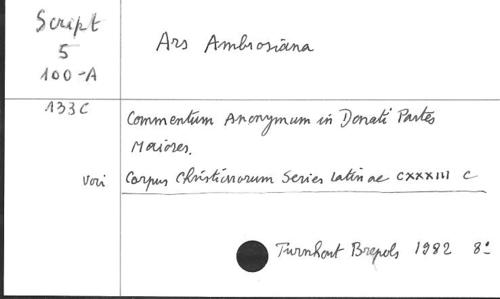 Script
5
100-A
Ars Ambrosiana
133C
Commentum Anonymum in Donati Partes
Maiores.
Vori
Corpus Christianorum Series Latinae CXXXIII C
Turnhout Brepols 1982 8°